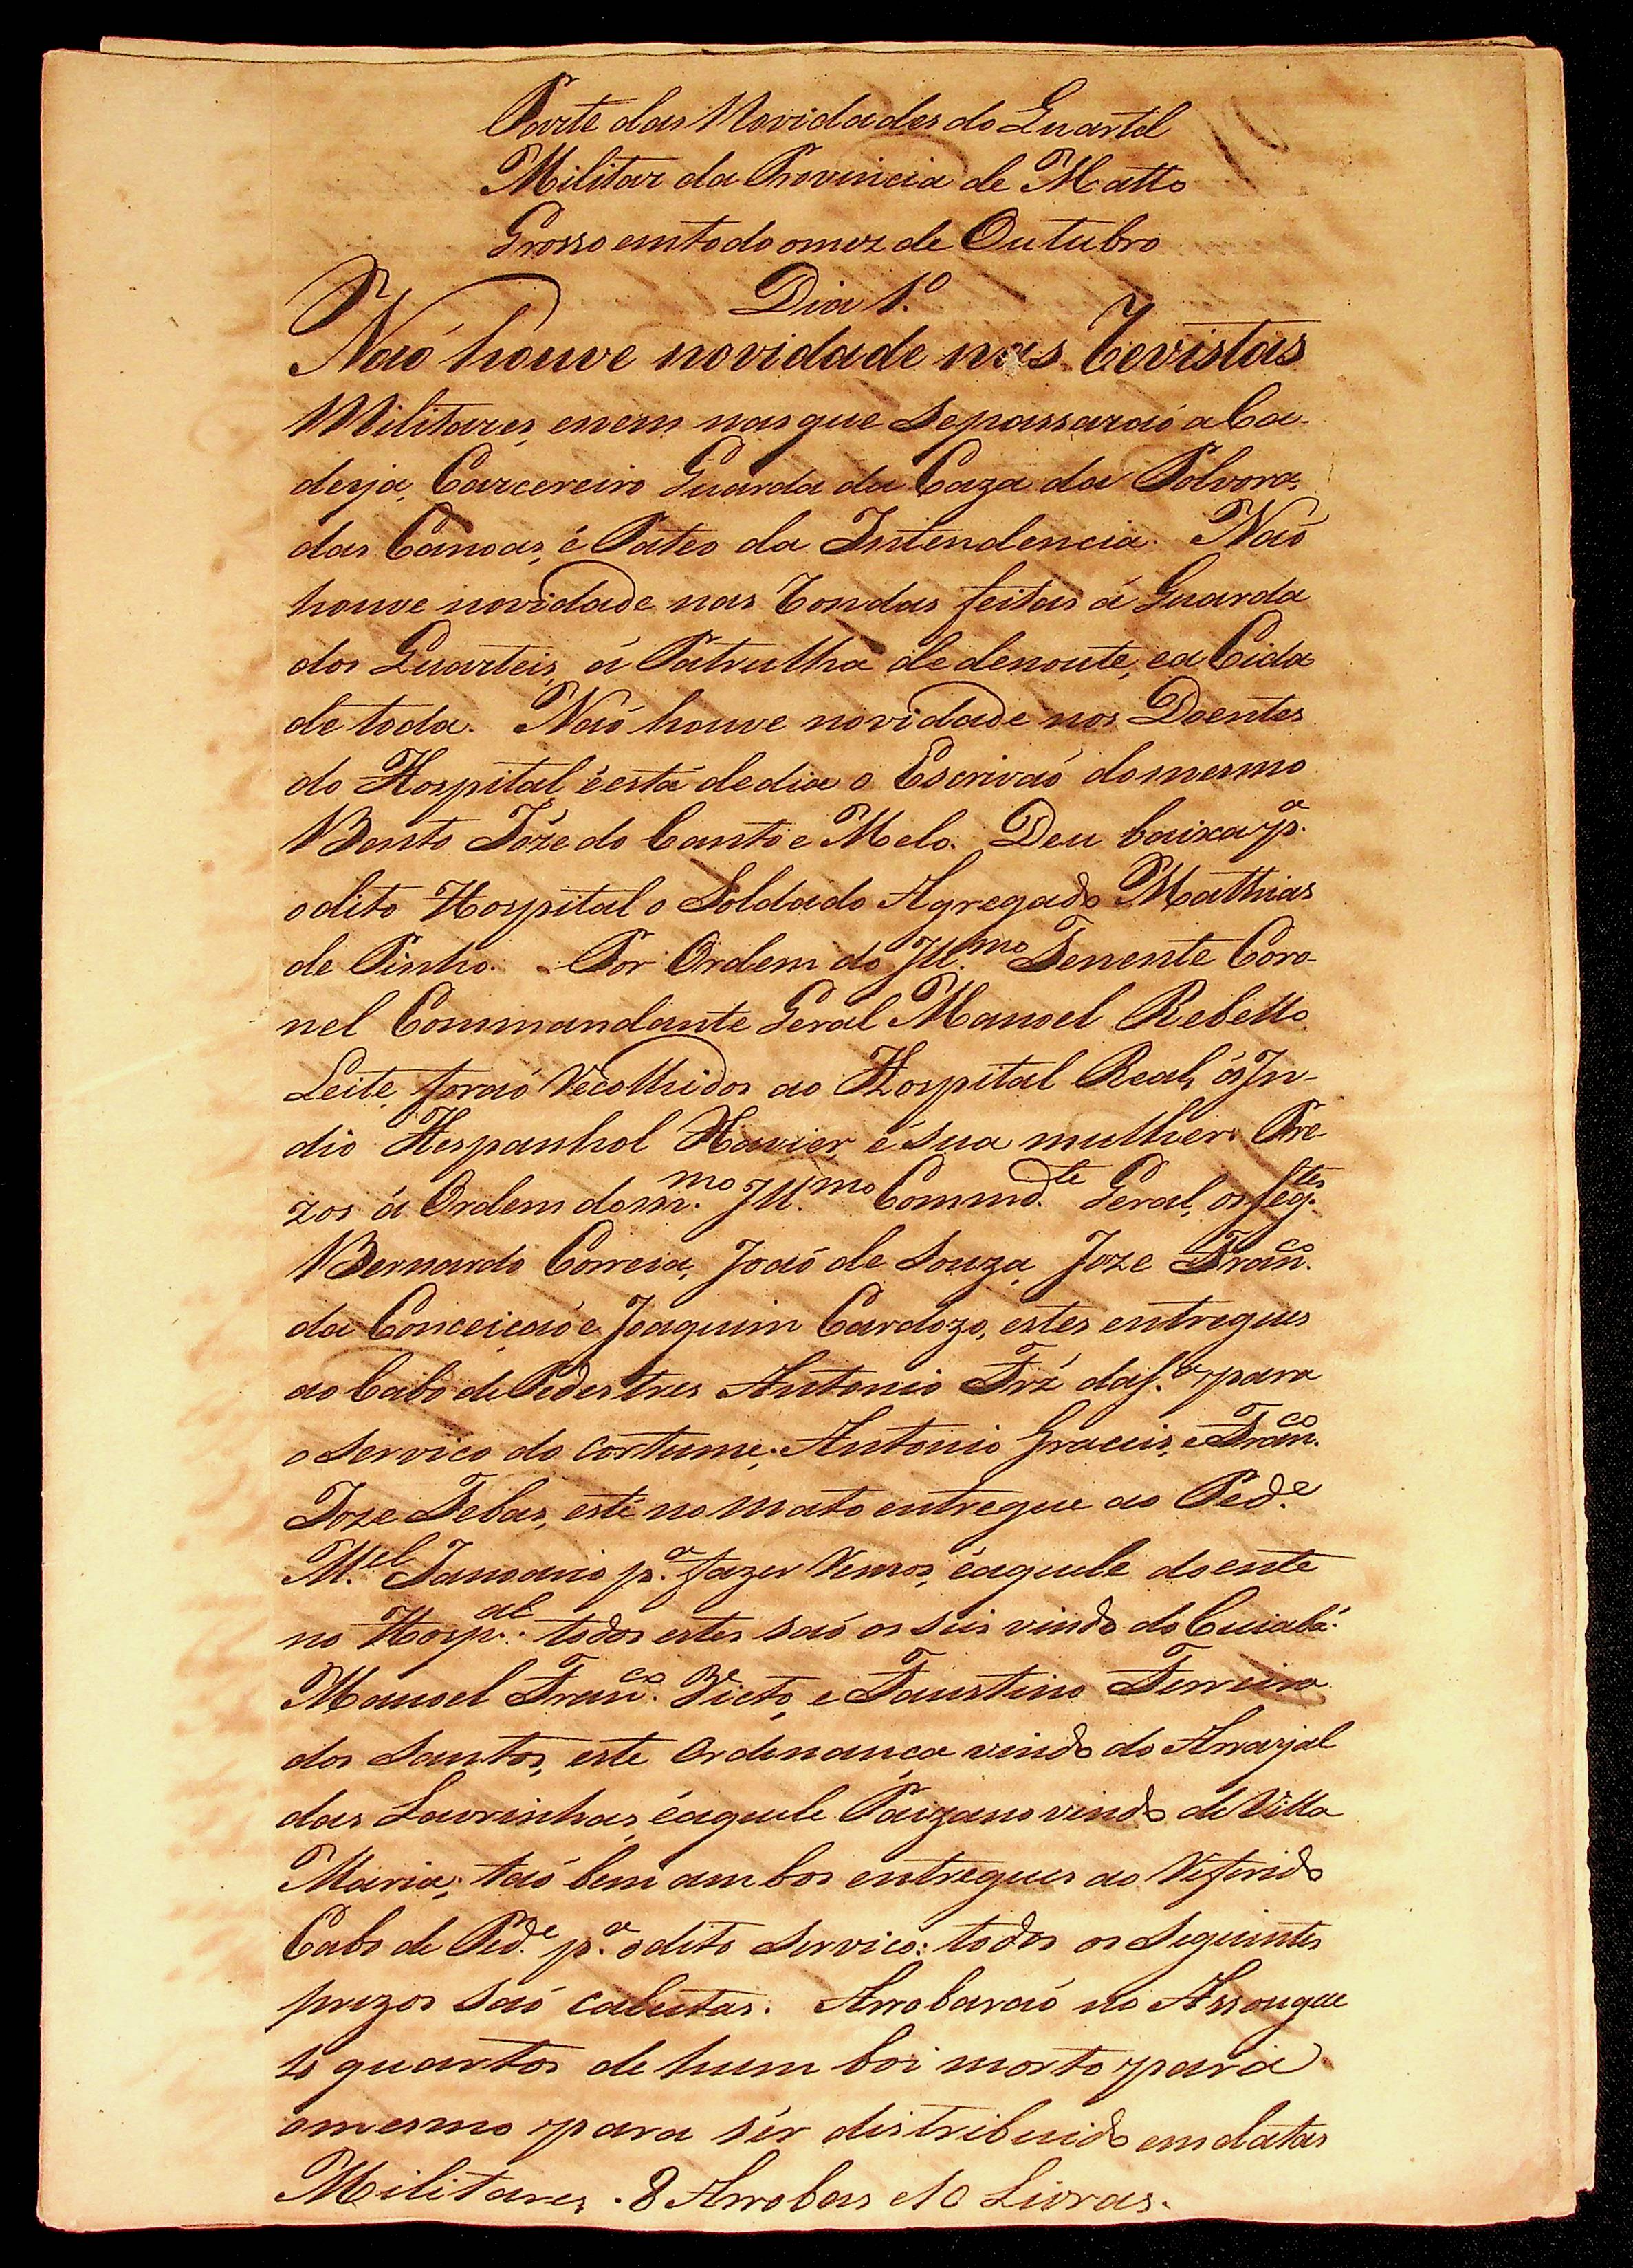 Parte das Novidades do Quartel
Militar da Provincia de Matto
Grosso em todo o mez de Outubro
Dia 1.º
Naó houve novidade nas Revistas
Militares, enem nas que Sepassaraó a Ca-
deya, Carcereiro Guarda da Caza da Polvora,
das Canoas, é Pateo da Intendencia. Naó
houve novidade nas Rondas feitas á Guarda
dos Quarteis, á Patrulha de denoute, ea Cida
de toda. Naó houve novidade nos Doentes
do Hospital é está de dia o Escrivaó do mesmo
Bento Józe do Canto e Melo. Deu baixa p.ª
o dito Hospital o Soldado Agregado Mathias
de Pinho. Por Ordem do Ill.mo Tenente Coro-
nel Commandante Geral Manoel Rebello
Leite, foraó Recolhidos ao Hospital Real, ós In-
dio Hespanhol Xavier, é sua mulher. Pre-
zos á Ordem do m.mo Ill.mo Commd.te Geral, os seg.tes
Bernardo Correia, Joaó de Souza, Joze Fran.co
da Conceicaó e Joaquim Cardozo, estes entregues
ao Cabo de Pedestres Antonio Frz da S.ª para
o Servico do cortume; Antonio Graceis, e Fran.co
Joze Tebas, este no mato entregue ao Ped.e
M.el Januario p.ª fazer Remos, éaquele doente
no Hosp.al: todos estes saó os seis vindo do Cuiabá.
Manoel Fran.co Picto, e Faustino Ferreira
dos Santos, este Ordenança vindo do Arrayal
das Lavrinhas, éaquele Paizano vindo de Villa
Maria; taó bem ambos entregues ao Referido
Cabo de Ped.e p.ª odito Servico: todos os Seguintes
prezos saó calcetas. Arrobaraó no Assougue
4 quartos de hum boi morto para
omesmo para sér distribuido em datas
Militares. 8 Arrobas e 10 Livras.